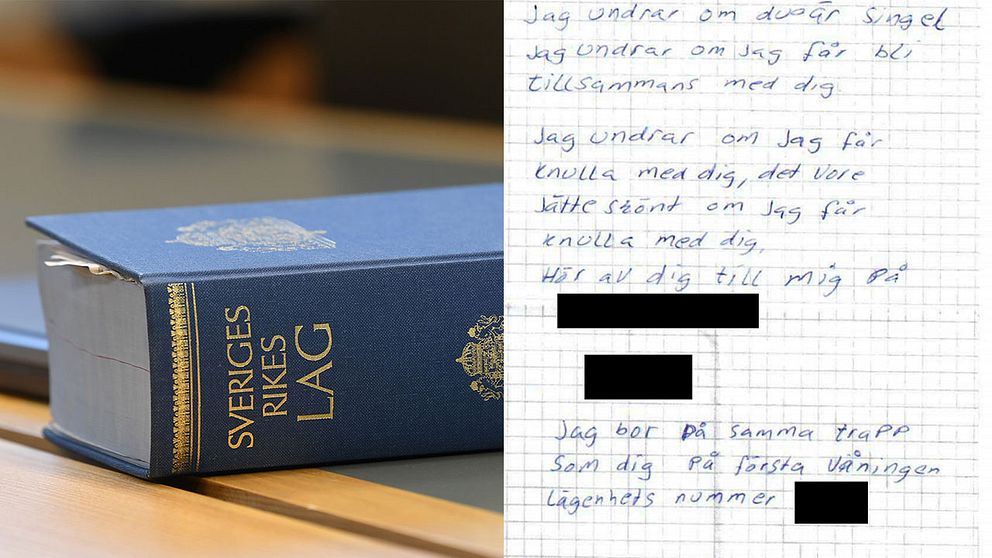 SVERIGES
RIKES
LAG
Jag undrar om duär singel
Jag undrar om Jag får bli
tillsammans med dig.
Jag undrar om Jag får
knulla med dig, det vore
Jätte skönt om Jag får
knulla med dig,
Hör av dig till mig på
Jag bor på samma trapp
som dig på första våningen
Lägenhets nummer